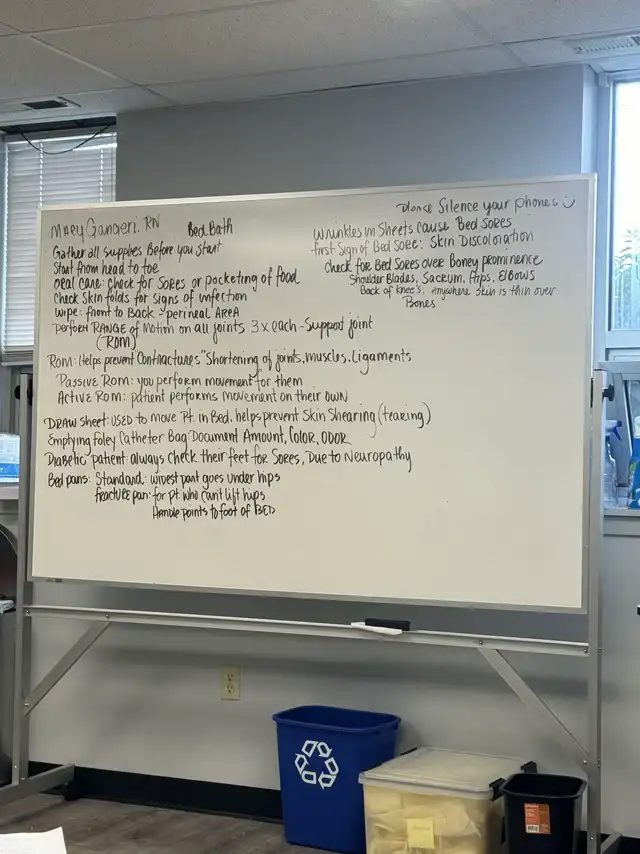 Mary Gangieri. RN
Bed Bath
Gather all supplies Before you start
Start from head to toe
Oral care: check for Sores or pocketing of food
Check Skin folds for Signs of infection
Wipe: front to Back - perineal AREA
Perform RANGE of Motion on all joints 3x each - Support joint
(ROM)
ROM: Helps prevent Contractures "Shortening of joints, muscles, Ligaments
Passive ROM: you perform movement for them
Active ROM: patient performs movement on their OWN
DRAW sheet: used to move Pt. in Bed. helps prevent Skin Shearing (tearing)
Emptying Foley Catheter Bag Document Amount, Color, ODOR
Diabetic patient always check their feet for Sores, Due to Neuropathy
Bed pans: Standard: widest part goes under hips
fracture pan: for pt. who can't lift hips
Handle points to foot of BED
Please Silence your phones
Wrinkles in Sheets Cause Bed SORES
first Sign of Bed Sore: Skin Discoloration
Check for Bed Sores over Boney prominence
Shoulder Blades, Sacrum, Hips, Elbows
Back of knee's. Anywhere Skin is thin over
Bones